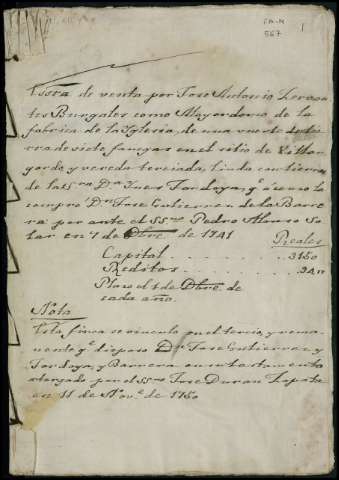 CA-N
567
1
Escra de venta por Jose Antonio
tes Burgales como Mayordomo de la
fabrica de la Yglesia, de una suerte de tier
ra de siete fanegas en el sitio de
gordo, y vereda terciada, linda con tierras
de la Sra Da Ines Tordoya, qe
compro Dn Jose Gutierrez de la Barre
ra por ante el SSno Pedro Alonso So
lar en 7 de Dbre de 1741
Reales
Capital . . . . . . 3150
Reditos . . . . . . 94
Plazo el 1 de Dbre de
cada año.
Nota
Esta finca se vinculo en el tercio, y rema
nente qe dispuso Dn Jose Gutierrez y
Tordoya, y Barrera en su testamento
otorgado por el SSno Jose Duran Zapata
en 11 de Nove de 1760